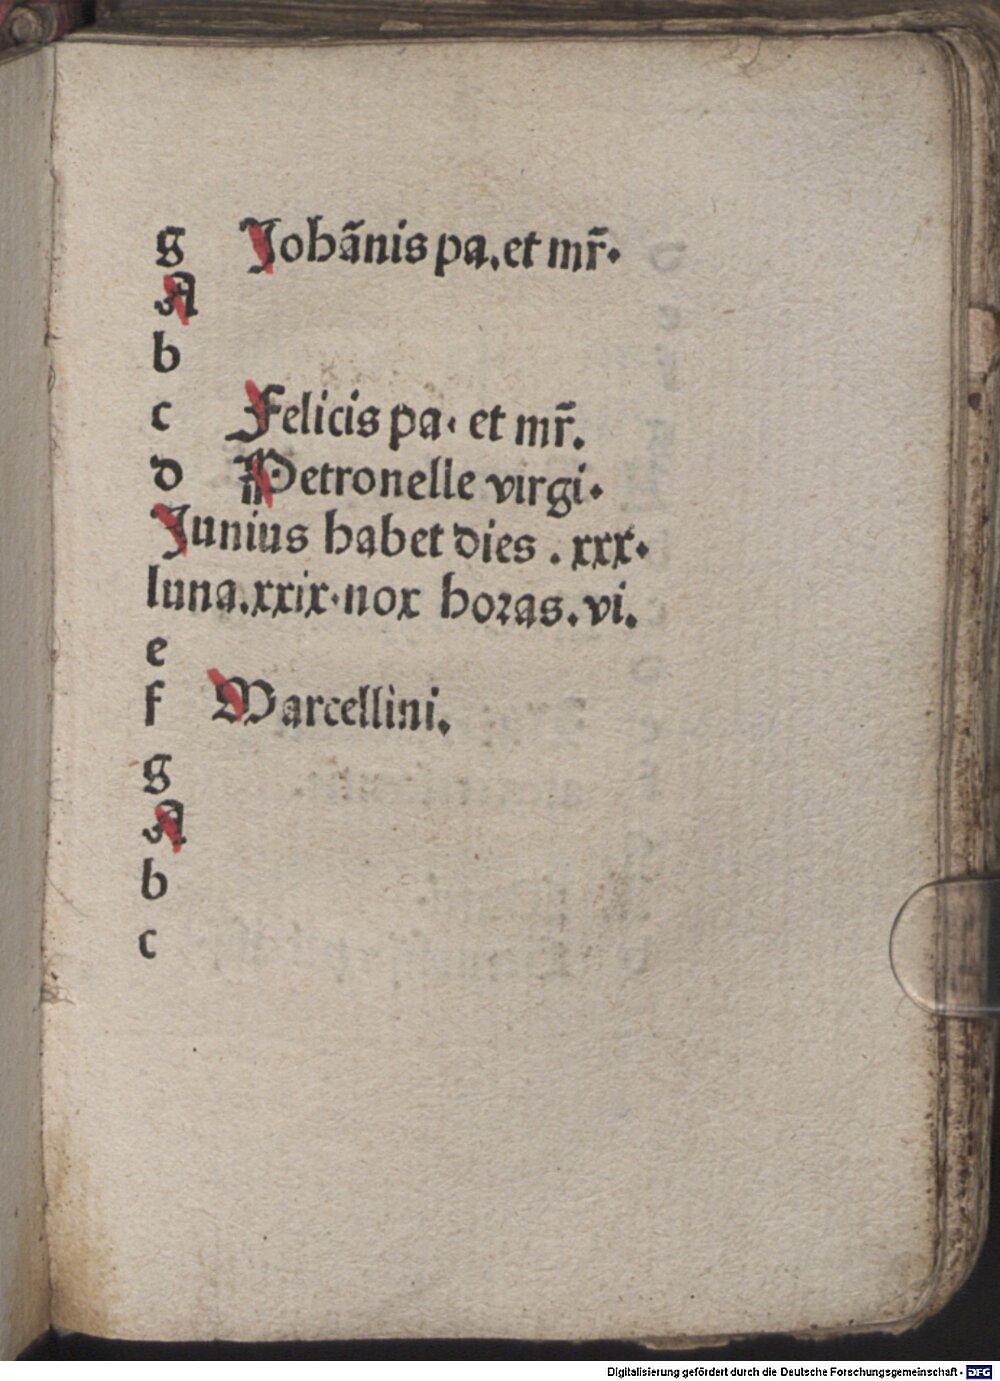 g Johānis pa. et mr̄.
A
b
c Felicis pa. et mr̄.
d Petronelle virgi.
Junius habet dies . xxx.
luna.xxix.nox horas.vi.
e
f Marcellini.
g
A
b
c
Digitalisierung gefördert durch die Deutsche Forschungsgemeinschaft - DFG